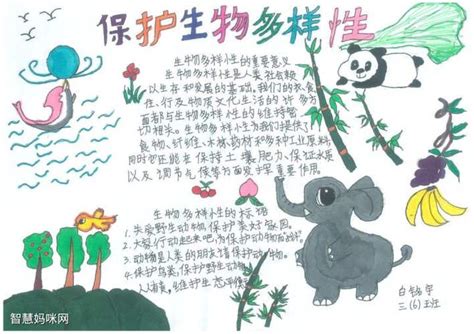 保护生物多样性
生物多样性的重要意义
生物多样性是人类社会赖
以生存和发展的基础。我们的衣、食、
住、行及物质文化生活的许多方
面都与生物多样性的维持密
切相关。生物多样性为我们提供了
食物、纤维、木材、药材和多种工业原料
同时它还能在保持土壤肥力、保证水质
以及调节气候等方面发挥重要作用。
生物多样性的标语
1.头爱野生动物,保护美好家园。
2.大家行动起来吧,为保护动物
3.动物是人类的朋友请保护动物。
4.保护鸟类,保护野生动物
维护生态
白
三(6)班
智慧妈咪网